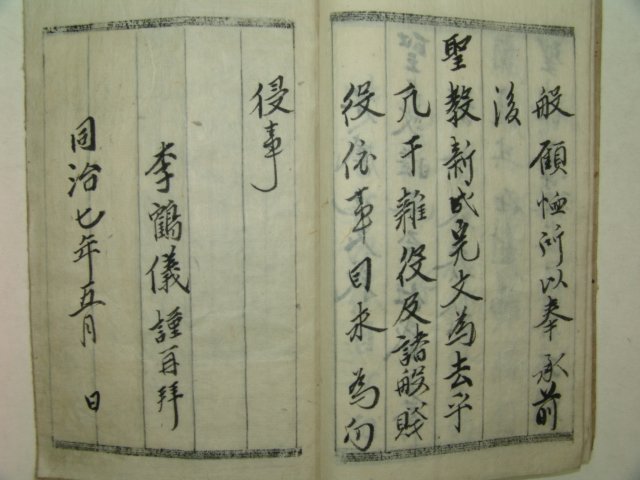 般顧恤所以奉承前
後
聖教新成完文為去乎
凡干雜役及諸般賤
役依事目永為勿
侵事
李鶴儀謹再拜
同治七年五月 日